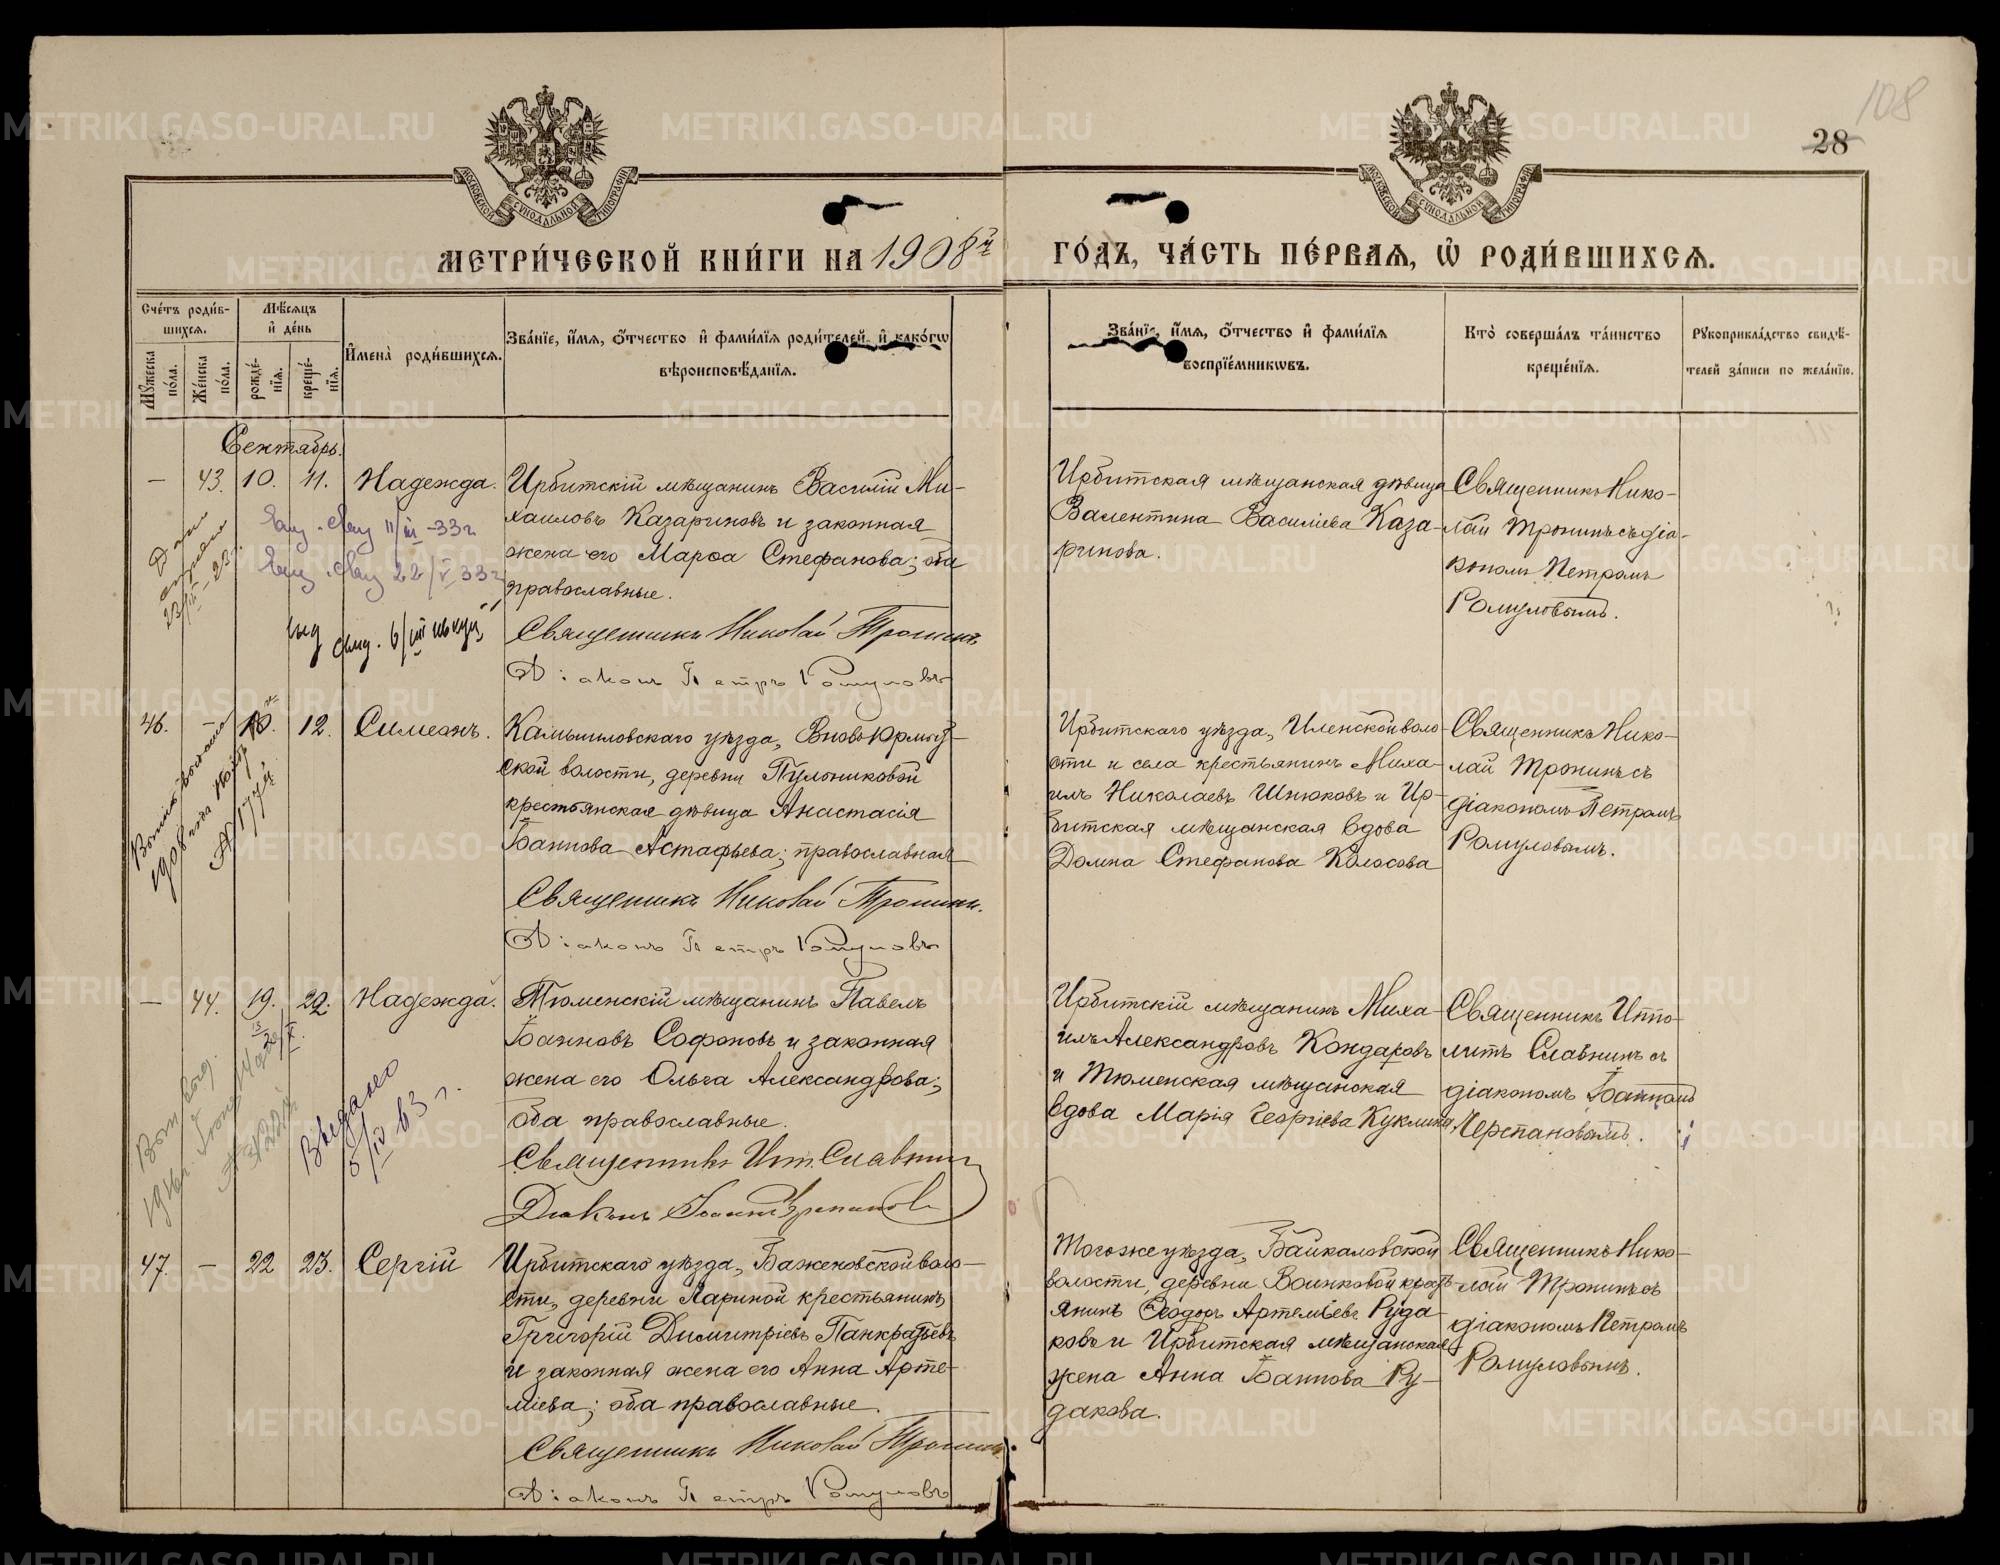 108
28
МОСКОВСКОЙ СѴНОДАЛЬНОЙ ТИПОГРАФІИ
МОСКОВСКОЙ СѴНОДАЛЬНОЙ ТИПОГРАФІИ
МЕТРИ́ЧЕСКОЙ КНИ́ГИ НА 1908й
ГО́ДЪ, ЧА́СТЬ ПЕ́РВАѦ, Ѡ҆ РОДИ́ВШИХСѦ.
Сче́тъ роди́в-
шихся.
Мѣ́сяцъ
и҆ де́нь
Мꙋ́жеска по́ла.
Же́нска по́ла.
рожде́-
нїя.
креще́-
нїя.
И҆мена̀ роди́вшихся.
Зва́нїе, и҆́мя, о҆́тчество и҆ фами́лїя роди́телей, и҆ како́гѡ
вѣроисповѣ́данїя.
Зва́нїе, и҆́мя, о҆́тчество и҆ фами́лїя
воспрїе́мникѡвъ.
Кто̀ соверша́лъ та́инство
креще́нїя.
Рꙋкоприкла́дство свидѣ́-
телей за́писи по жела́нїю.
Сентябрь.
— 43. 10. 11. Надежда.
Ирбитскій мѣщанинъ Василій Ми-
хаиловъ Казариновъ и законная
жена его Марѳа Стефанова; оба
православные.
Священникъ Николай Тронинъ
Діаконъ Петръ Ромуловъ
Ирбитская мѣщанская дѣвица
Валентина Василіева Каза-
ринова.
Священникъ Нико-
лай Тронинъ съ діа-
кономъ Петромъ
Ромуловымъ.
11/III -33г
22/V 33г
46. — 10. 12. Симеонъ.
Камышловскаго уѣзда, Вновь-Юрмыт-
ской волости, деревни Пульниковой
крестьянская дѣвица Анастасія
Іоаннова Астафьева; православная
Священникъ Николай Тронинъ.
Діаконъ Петръ Ромуловъ
Ирбитскаго уѣзда, Иленской воло-
сти и села крестьянинъ Миха-
илъ Николаевъ Шнюковъ и Ир-
битская мѣщанская вдова
Домна Стефанова Колосова
Священникъ Нико-
лай Тронинъ съ
діакономъ Петромъ
Ромуловымъ.
1908 года
№ 177й
— 44. 19. 22. Надежда.
Тюменскій мѣщанинъ Павелъ
Іоанновъ Софоновъ и законная
жена его Ольга Александрова;
оба православные.
Священникъ Ипп. Славнинъ
Діаконъ Іоаннъ Черепановъ
Ирбитскій мѣщанинъ Миха-
илъ Александровъ Кондаровъ
и Тюменская мѣщанская
вдова Марія Георгіева Куклина.
Священникъ Иппо-
литъ Славнинъ съ
діакономъ Іоанномъ
Черепановымъ.
1916г.
5/IV 63 г.
47. — 22 23. Сергій
Ирбитскаго уѣзда, Баженовской воло-
сти, деревни Лариной крестьянинъ
Григорій Димитріевъ Панкратьевъ
и законная жена его Анна Арте-
міева; оба православные.
Священникъ Николай Тронинъ.
Діаконъ Петръ Ромуловъ
Того же уѣзда, Байкаловской
волости, деревни Воинковой кресть-
янинъ Ѳеодоръ Артеміевъ Руда-
ковъ и Ирбитская мѣщанская
жена Анна Іоаннова Ру-
дакова.
Священникъ Нико-
лай Тронинъ съ
діакономъ Петромъ
Ромуловымъ.
METRIKI.GASO-URAL.RU